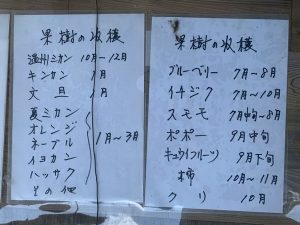 果樹の収穫
温州ミカン 10月〜12月
キンカン 1月
文旦 1月
夏ミカン
オレンジ
ネーブル
イヨカン
ハッサク
その他
1月〜3月
果樹の収穫
ブルーベリー 7月〜8月
イチジク 7月〜10月
スモモ 7月中旬〜8月
ポポー 9月中旬
キュウイフルーツ 9月下旬
柿 10月〜11月
クリ 10月